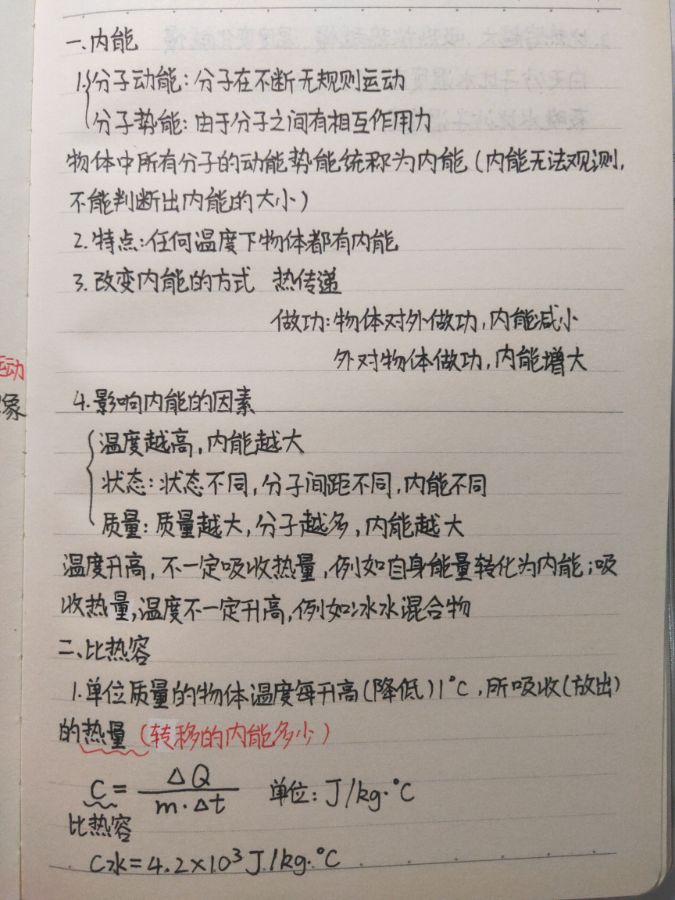 一、内能
1.分子动能：分子在不断无规则运动
分子势能：由于分子之间有相互作用力
物体中所有分子的动能势能统称为内能（内能无法观测，
不能判断出内能的大小）
2.特点：任何温度下物体都有内能
3.改变内能的方式 热传递
做功：物体对外做功，内能减小
外对物体做功，内能增大
运动
象
4.影响内能的因素
温度越高，内能越大
状态：状态不同，分子间距不同，内能不同
质量：质量越大，分子越多，内能越大
温度升高，不一定吸收热量，例如自身能量转化为内能；吸
收热量，温度不一定升高，例如：冰水混合物
二、比热容
1.单位质量的物体温度每升高（降低）1°C，所吸收（放出）
的热量（转移的内能多少）
C = ΔQ / m·Δt 单位：J/kg·°C
比热容
C水=4.2×10³J/kg·°C